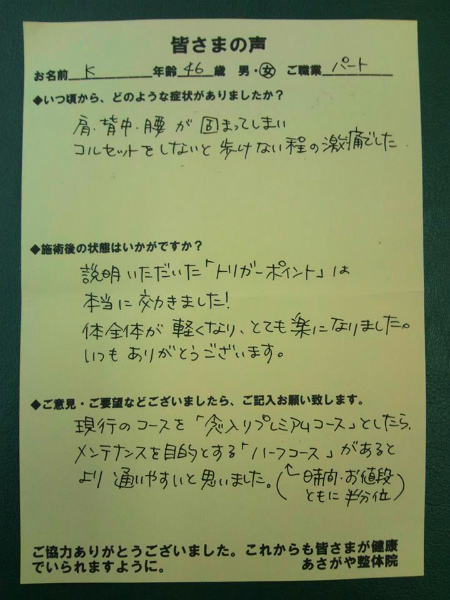 皆さまの声
お名前 K 年齢 46 歳 男・女 ご職業 パート
◆いつ頃から、どのような症状がありましたか？
肩・背中・腰が固まってしまい
コルセットをしないと歩けない程の激痛でした
◆施術後の状態はいかがですか？
説明いただいた「トリガーポイント」は
本当に効きました！
体全体が軽くなり、とても楽になりました。
いつもありがとうございます。
◆ご意見・ご要望などございましたら、ご記入お願い致します。
現行のコースを「念入りプレミアムコース」としたら、
メンテナンスを目的とする「ハーフコース」があると
より通いやすいと思いました。(←時間・お値段
ともに半分位)
ご協力ありがとうございました。これからも皆さまが健康
でいられますように。 あさがや整体院